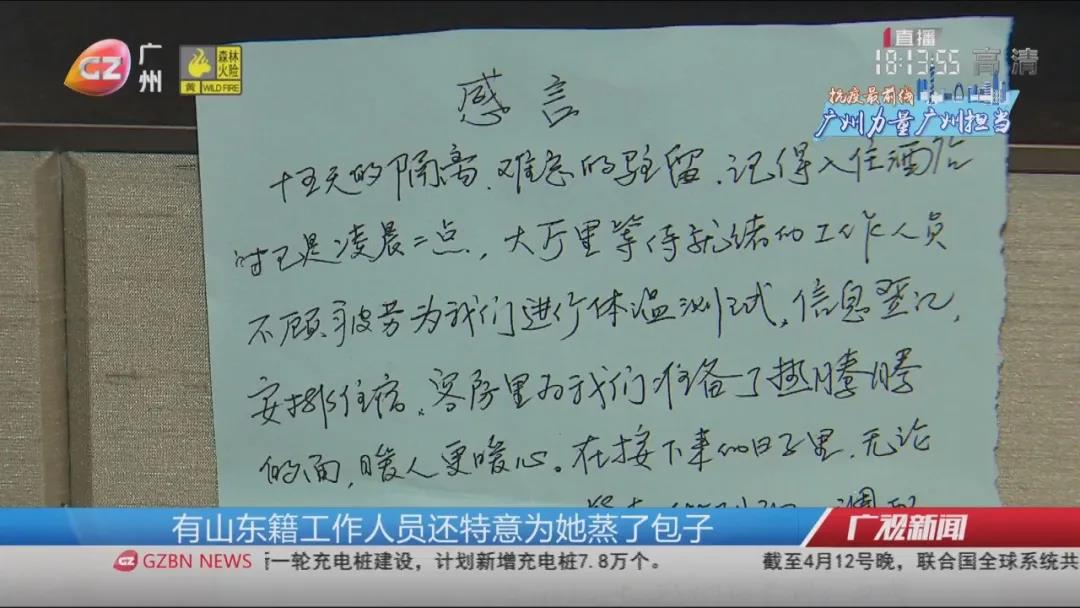 GZ 广州
森林火险
黄 WILD FIRE
直播
18:13:55 高清
抗疫最前线
广州力量 广州担当
感言
十五天的隔离、难忘的驻留、记得入住酒店
时已是凌晨二点，大厅里等待就绪的工作人员
不顾疲劳为我们进行体温测试、信息登记，
安排住宿、客房里为我们准备了热腾腾
的面，暖人更暖心。在接下来的日子里、无论
有山东籍工作人员还特意为她蒸了包子
广视新闻
GZ GZBN NEWS 一轮充电桩建设，计划新增充电桩7.8万个。 截至4月12号晚，联合国全球系统共